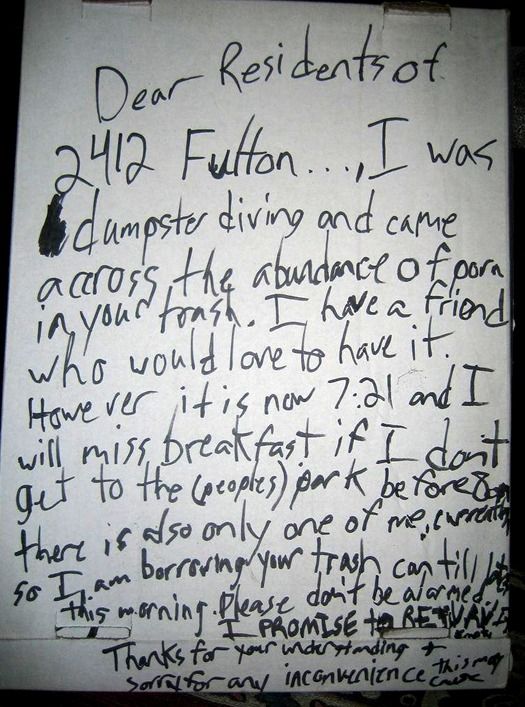 Dear Residents of
2412 Fulton...., I was
dumpster diving and came
accross the abundance of porn
in your trash. I have a friend
who would love to have it.
However it is now 7:21 and I
will miss breakfast if I don't
get to the (peoples) park before 8am
there is also only one of me, currently
so I am borrowing your trash can till
this morning. Please don't be alarmed
I PROMISE to
Thanks for your understanding +
sorry for any inconvenience this may
cause